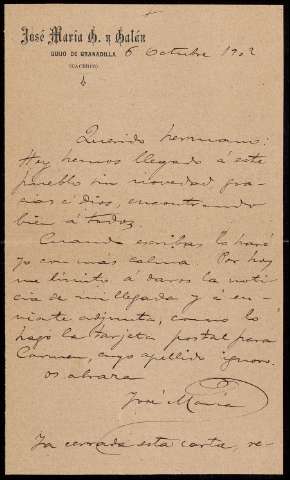 José María G. y Galán
GUIJO DE GRANADILLA
(CACERES)
6 Octubre 1902
Querido hermano:
Hoy hemos llegado á este
pueblo sin novedad, gra-
cias á dios, encontrando
bien á todos.
Cuando escribas lo haré
yo con más calma. Por hoy
me limito á daros la noti-
cia de mi llegada y á en-
viarte adjunta, como lo
hago la tarjeta postal para
Carmen, cuyo apellido ignoro.
os abraza
José María
Ya cerrada esta carta, re-